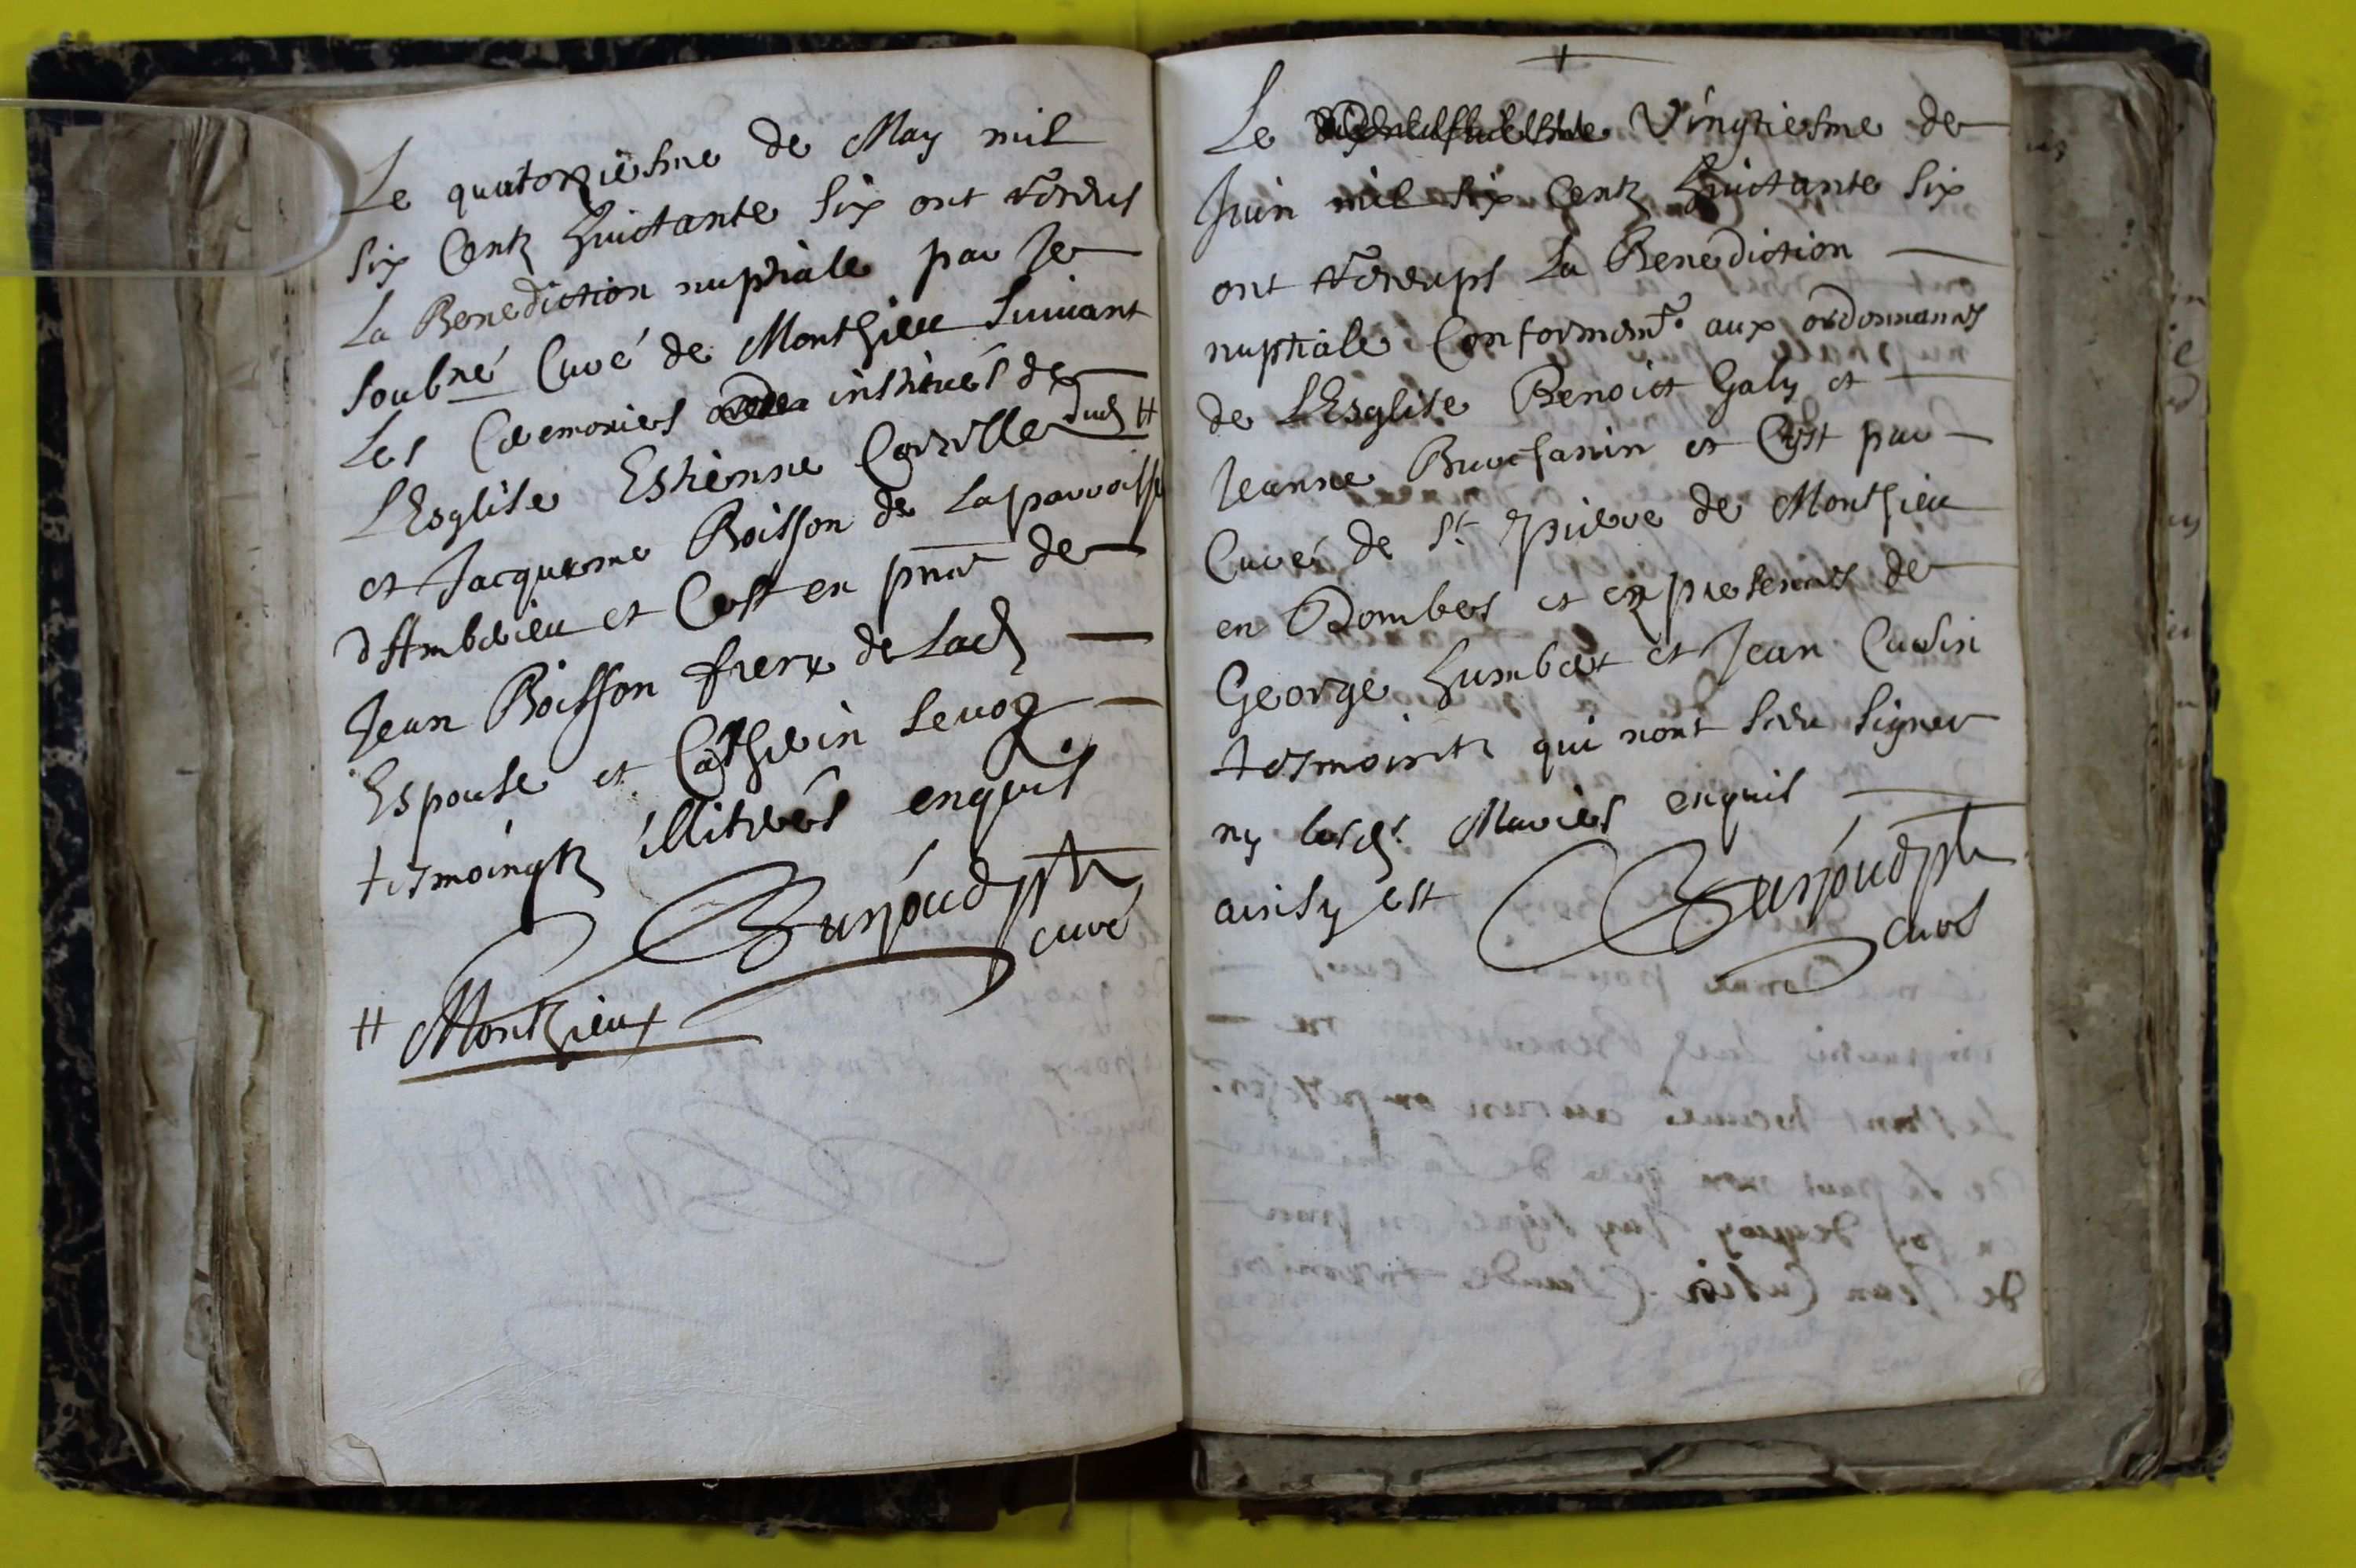 Le quatorziesme de May mil
six Centz huictante six ont receus
La Benediction nuptiale par Je
soubne Curé de Monthieu suivant
Les Ceremonies institués de
L'Esglise Estienne dud #
et Jacquesme Boisson de la parroisse
d'Amberieu et C'est en pnce de
Jean Boisson frere de Lad
Espouse et Catherin
tesmoingtz illiterés enquis
ptre
curé
# Monthieux
Le Vingtiesme de
Juin mil six Centz huictante six
ont receups La Benediction
nuptiale Conformemt. aux ordonnances
de L'Esglise Benoict Galy et
Jeanne et C'est par
Curé de St pierre de Monthieu
en Dombes et en presences de
George humbert et Jean Cusin
tesmointz qui nont sceu signer
ny lesds. Mariés enquis
ainsy est ptre
curé